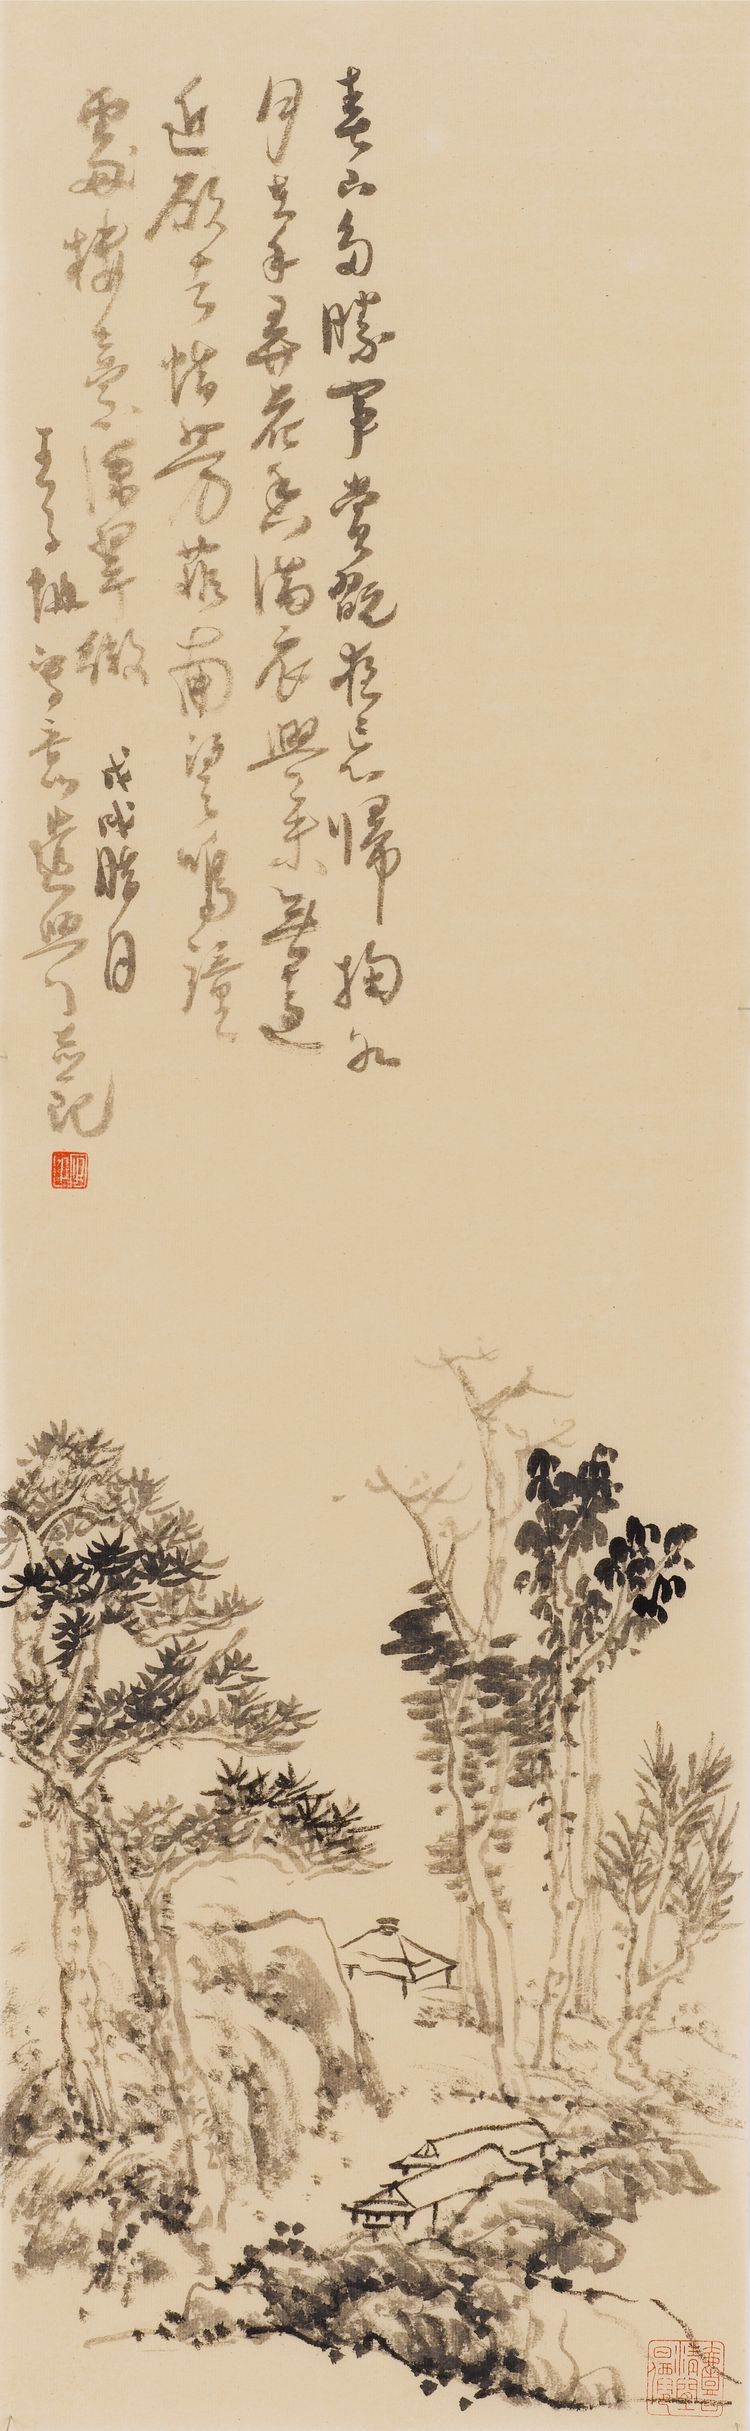 春山多勝事賞翫夜忘歸掬水
月在手弄花香滿衣興來無遠
近欲去惜芳菲南望鳴鐘
處樓臺深翠微
戊戌腊月
王子 写意遣興 並記